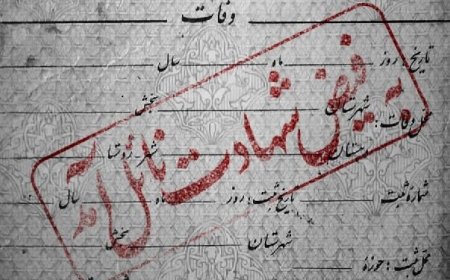 وفات
تاریخ: روز ماه سال
محل وفات: شهرستان بخش
دهستان شهر-روستا
شماره ثبت تاریخ ثبت: روز ماه سال
محل ثبت: حوزه شهرستان بخش
به فیض شهادت نائل آمد